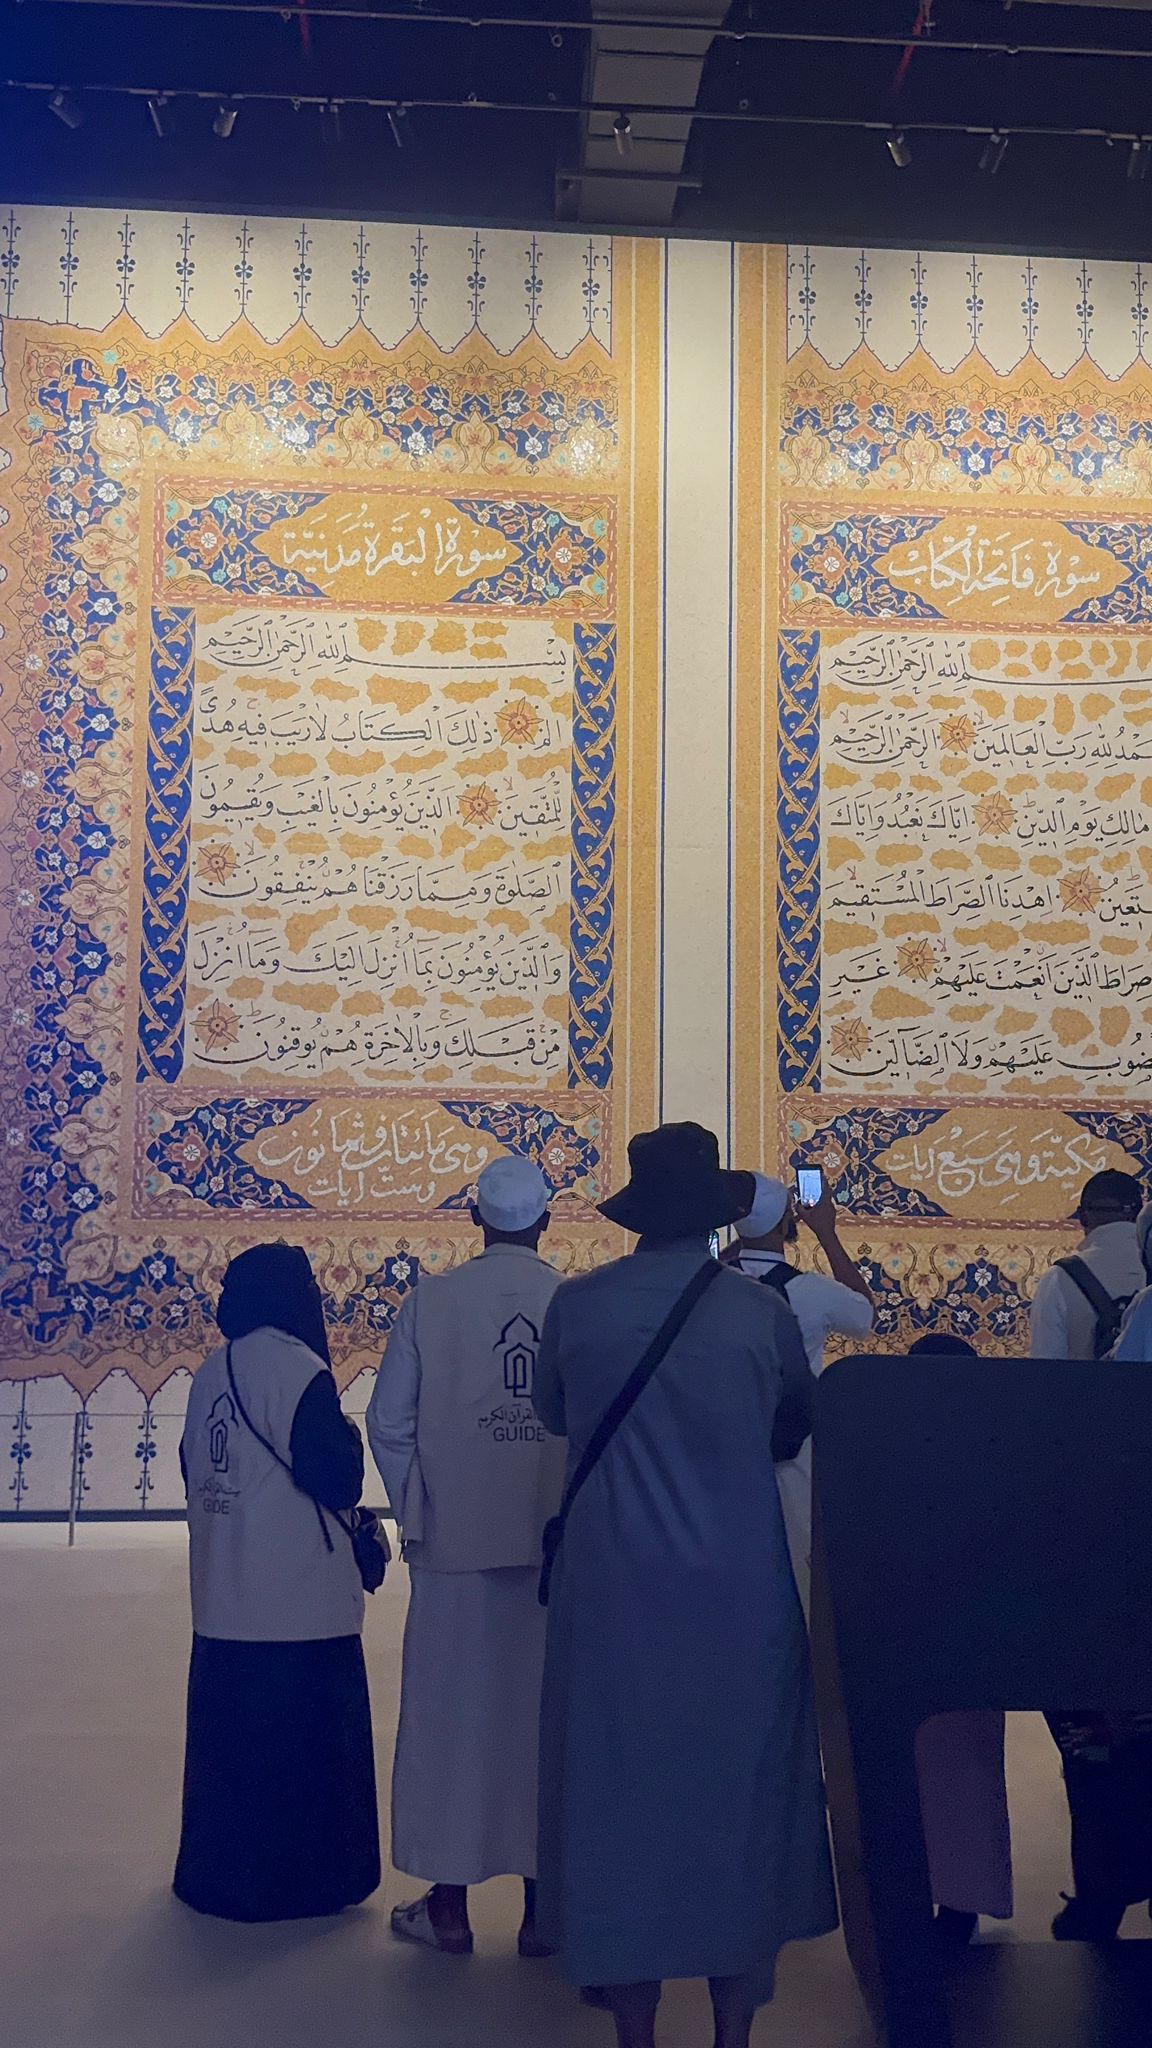 سورة فاتحة الكتاب
ـمِ اللهِ الرَّحْمٰنِ الرَّحِيمِ
ـمْدُ لِلّٰهِ رَبِّ الْعَالَمِينَ الرَّحْمٰنِ الرَّحِيمِ
مَالِكِ يَوْمِ الدِّينِ اِيَّاكَ نَعْبُدُ وَاِيَّاكَ
ـتَعِينُ اِهْدِنَا الصِّرَاطَ الْمُسْتَقِيمَ
صِرَاطَ الَّذِينَ اَنْعَمْتَ عَلَيْهِمْ غَيْرِ
ـضُوبِ عَلَيْهِمْ وَلَا الضَّالِّينَ
مَكِّيَّة وَهِيَ سَبْعُ اٰيات
سورة البَقَرة مَدَنِيَّة
بِسْمِ اللهِ الرَّحْمٰنِ الرَّحِيمِ
الم ذٰلِكَ الْكِتَابُ لَا رَيْبَ فِيهِ هُدًى
لِلْمُتَّقِينَ الَّذِينَ يُؤْمِنُونَ بِالْغَيْبِ وَيُقِيمُونَ
الصَّلٰوةَ وَمِمَّا رَزَقْنَاهُمْ يُنْفِقُونَ
وَالَّذِينَ يُؤْمِنُونَ بِمَا اُنْزِلَ اِلَيْكَ وَمَا اُنْزِلَ
مِنْ قَبْلِكَ وَبِالْاٰخِرَةِ هُمْ يُوقِنُونَ
وهي مائتان وثمانون
وست آيات
القرآن الكريم
GUIDE
GUIDE